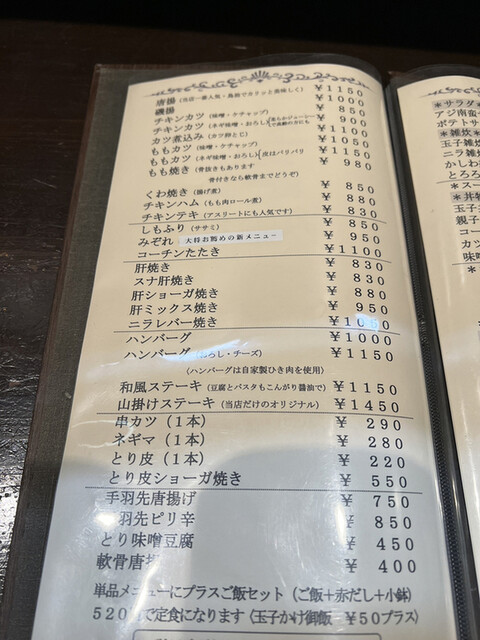 唐揚(当店一番人気・鳥肌でカリッと美味しく) ￥1150
磯揚 ￥1000
チキンカツ(味噌・ケチャップ) ￥850
チキンカツ(ネギ味噌・おろし) ￥900
カツ煮込み(カツ卵とじ) ￥1100
ももカツ(味噌・ケチャップ) ￥1050
ももカツ(ネギ味噌・おろし)(皮はパリパリ ￥1150
もも焼き(骨抜きもあります ￥980
骨付きなら軟骨までどうぞ)
くわ焼き(揚げ煮) ￥850
チキンハム(もも肉ロール煮) ￥880
チキンテキ(アスリートにも人気です) ￥830
しもふり(ササミ) ￥850
みぞれ 大将お勧めの新メニュー ￥950
コーチンたたき ￥1100
肝焼き ￥830
スナ肝焼き ￥830
肝ショーガ焼き ￥880
肝ミックス焼き ￥950
ニラレバー焼き
ハンバーグ ￥1000
ハンバーグ(おろし・チーズ) ￥1150
(ハンバーグは自家製ひき肉を使用)
和風ステーキ(豆腐とパスタもこんがり醤油で) ￥1150
山掛けステーキ(当店だけのオリジナル) ￥1450
串カツ(1本) ￥290
ネギマ(1本) ￥280
とり皮(1本) ￥220
とり皮ショーガ焼き ￥550
手羽先唐揚げ ￥750
羽先ピリ辛 ￥850
とり味噌豆腐 ￥450
軟骨唐揚 ￥400
単品メニューにプラスご飯セット(ご飯+赤だし+小鉢)
520で定食になります〈玉子かけ御飯 ￥50プラス〉
＊サラダ
アジ南蛮
ポテトサ
＊雑炊
玉子雑
ニラ雑
とろろ
＊スー
＊丼物
玉子
親子
コー
カツ
味噌
＊